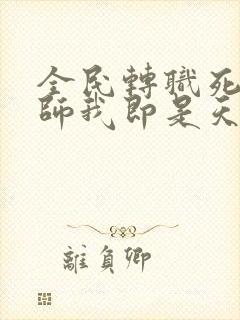 全民轉職死
師我即是天
離負卿